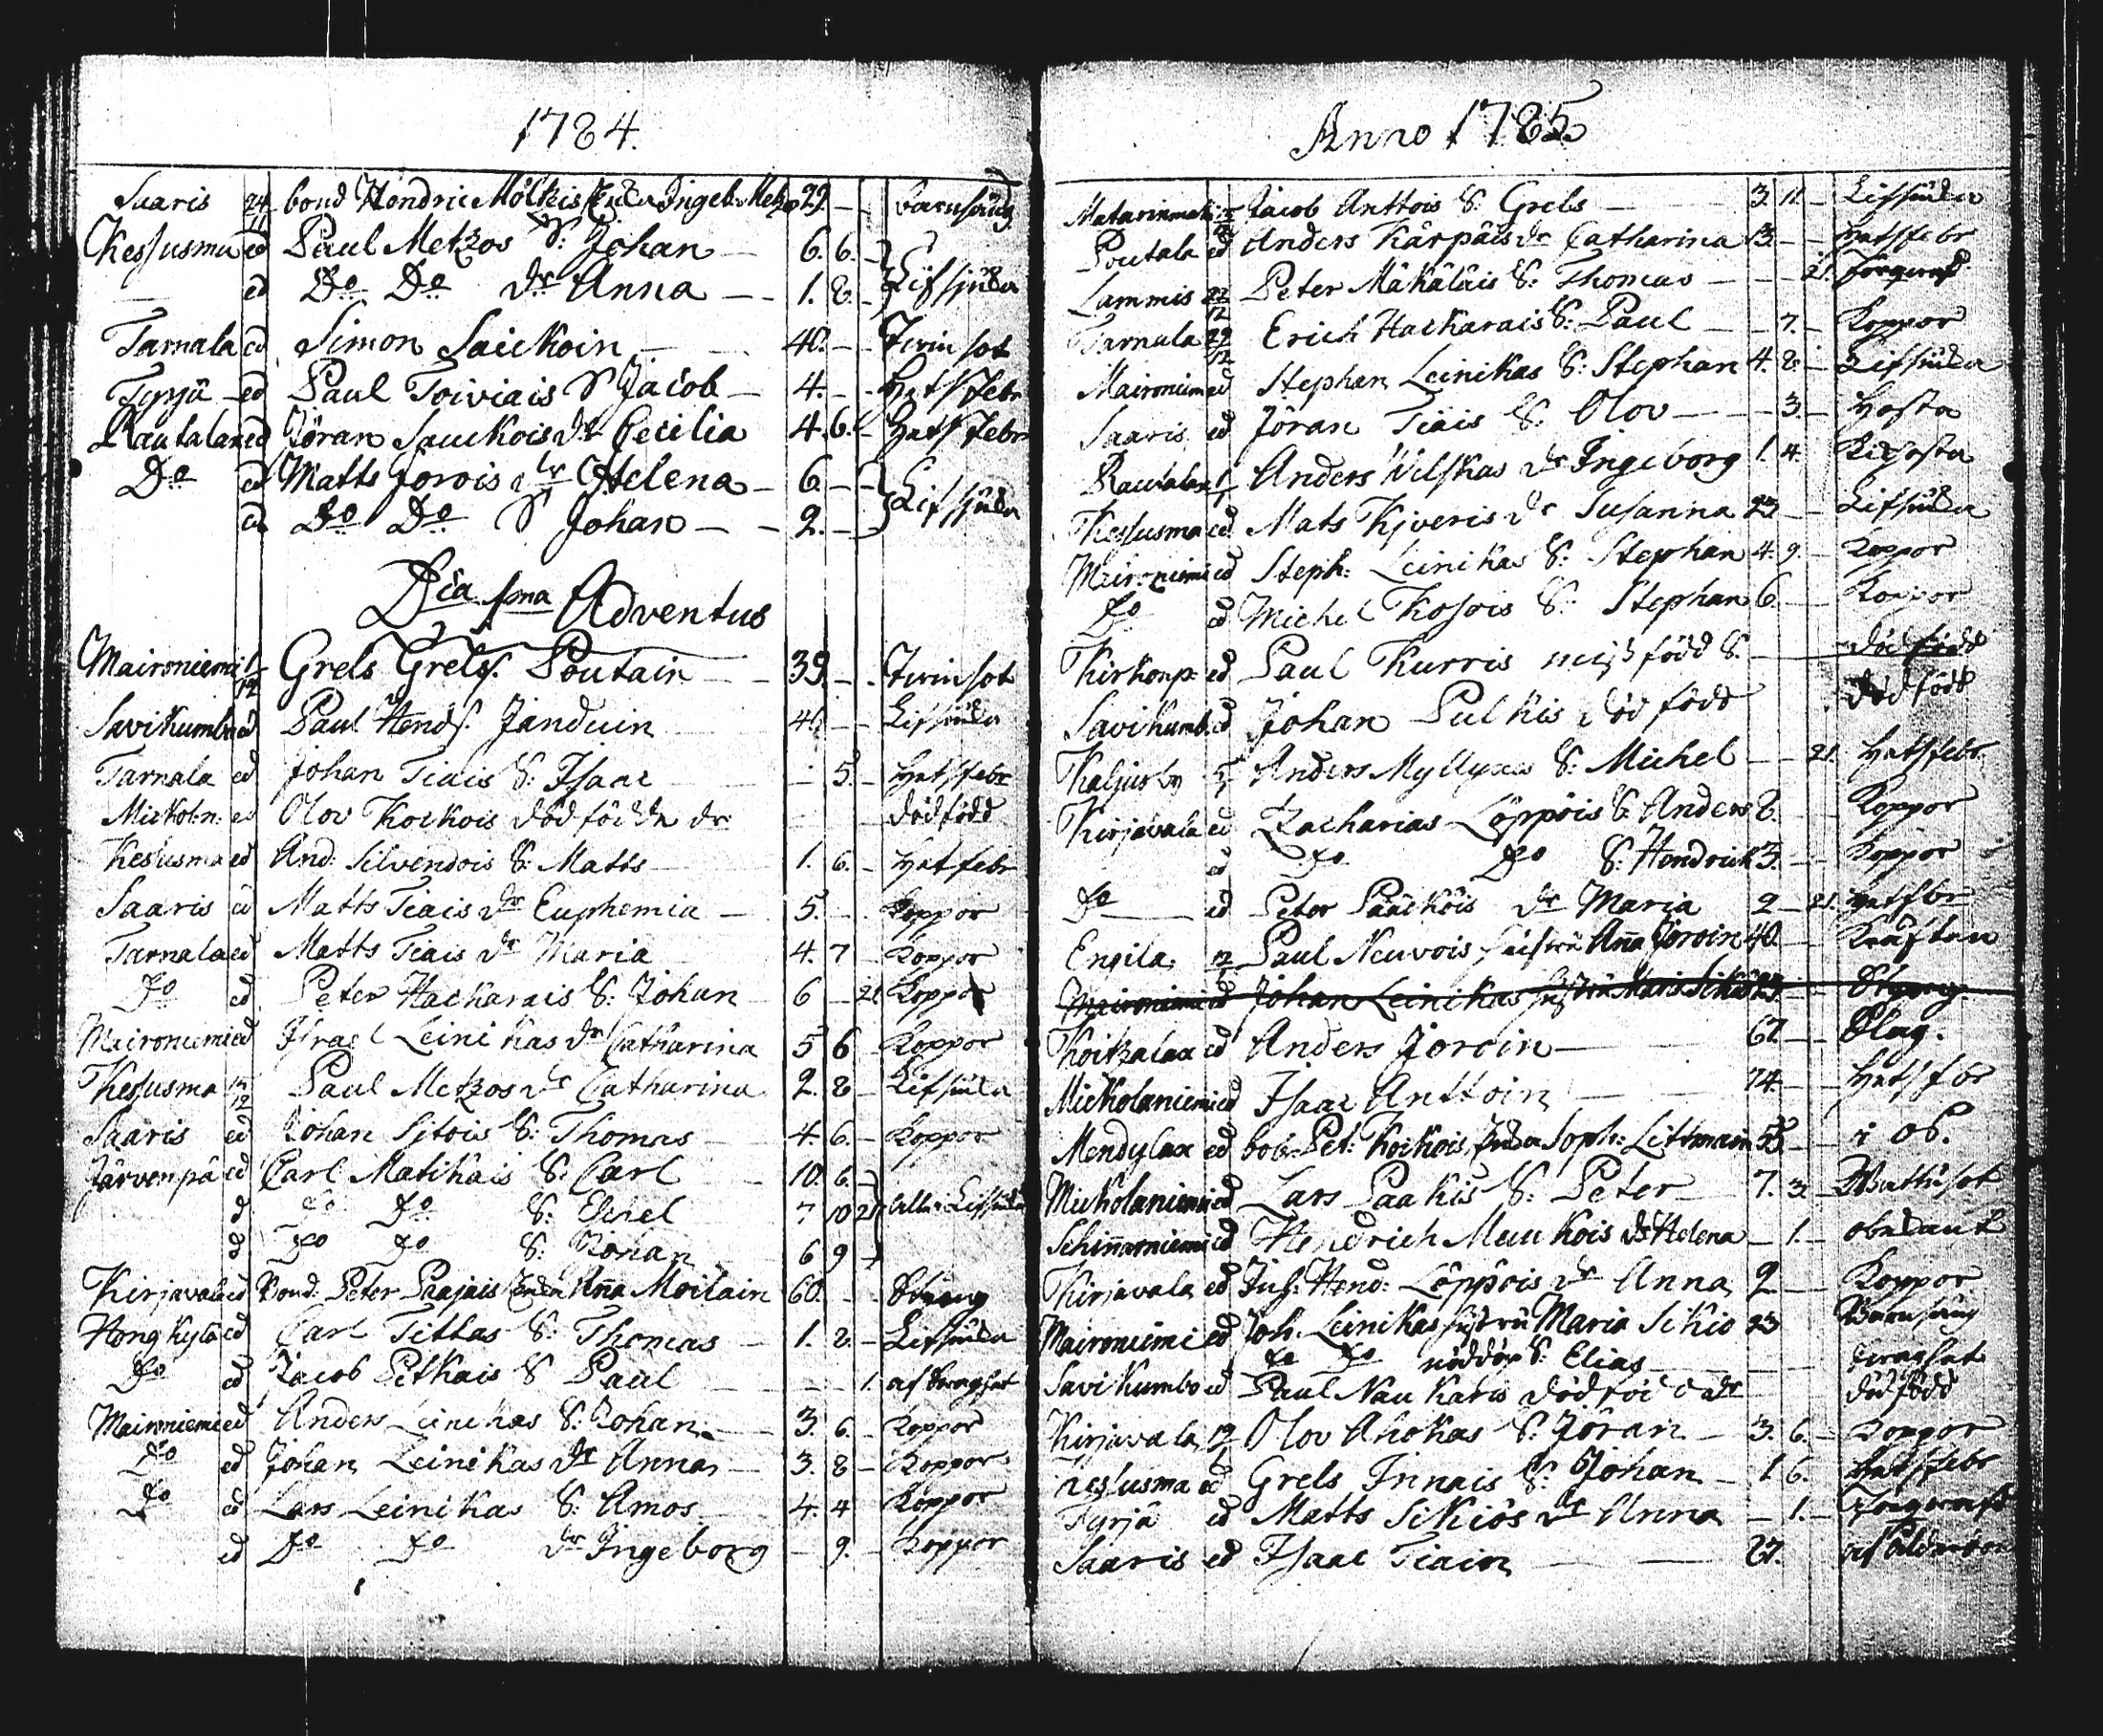 1784.
Saaris 24/11 bond Hendric Mölkis Enka Ingeb: Metzo 29. — Barnsäng
Kesusma ed Paul Metzos S: Johan — 6. 6. —
— ed Do Do dr Anna — 1. 8. — Lifsjuka
Tarnala ed Simon Saickoin — 40. — Twinsot
Tyrjä ed Paul Toiviais S Jacob — 4. — Hetsfebr
Rautalax ed Jöran Sauckois dr Cecilia 4. 6. — Hetsfebr
Do ed Matts Jorois dr Helena — 6. —
ed Do Do S Johan — 2. — Lifsjuka
Dca 1ma Adventus
Maironiemi 1/12 Grels Grelss. Poutain — 39. — Twinsot
Savikumbu ed Paul Hends. Janduin 46. — Lifsjuka
Tarnala ed Johan Tiais S: Isaac — 5. — Hetsfebr
Mickoln: ed Olov Kockois dödfödda dr dödfödd
Kesusma ed And: Silvendois S: Matts — 1. 6. — Hetfebr
Saaris ed Matts Tiais dr Euphemia — 5. — Koppor
Tarnala ed Matts Tiais dr Maria 4. 7 — Koppor
Do ed Peter Hackarais S: Johan 6 — 21 Koppor
Maironiemi ed Israel Leinikas dr Catharina 5 6 Koppor
Kesusma 12/12 Paul Metzos dr Catharina 2. 8 — Lifsjuka
Saaris ed Johan Sitois S: Thomas — 4. 6. — Koppor
Järvenpä ed Carl Matikais S: Carl 10. 6. —
d Do Do S: 7 10 21 alla i Lifsjuka
d Do Do S: Johan 6 9 —
Kirjavala ed Bond: Peter Paajais Enka Aña Moilain 60. — Styng
Honqkylä ed Carl Tittas S: Thomas — 1. 8. — Lifsjuka
Do ed Jacob Petkais S Paul — 1. af
Maironiemi ed Anders Leinikas S: Johan — 3. 6. — Koppor
Do ed Johan Leinikas dr Anna — 3. 8 — Koppor
Do ed Lars Leinikas S: Amos — 4. 4 Koppor
ed Do Do dr Ingeborg — 9. — Koppor
Anno 1785
Jacob Anttois S: Grels — 3. 11. — Lifsjuka
Poutala ed Anders Kärpäis dr Catharina 13. — Hetsfebr
Lammis 22/12 Peter Mäkäläis S: Thomas — 21.
Tarnala 29/12 Erich Hackarais S: Paul — 7. — Koppor
Maironiem ed Stephan Leinikas S: Stephan 4. 8 — Lifsjuka
Saaris ed Jöran Tiais S: Olov — 3. — Hosta
Rautalax Anders Vilskas dr Ingeborg 1. 4. Kikhosta
Kesusma ed Mats Kjveris dr Susanna 23 — Lifsjuka
Maironiemi ed Steph: Leinikas S: Stephan 4. 9. — Koppor
Do ed Michel Kosois S: Stephan 6. — Koppor
Kirkonp: ed Paul Kurris missfödd S. — dödfödd
Savikumb. ed Johan Pulkis dödfödd dödfödd
Kaljusby Anders Myllynen S: Michel — 21. Hetsfebr.
Kirjavala ed Zacharias Löppöis S: Anders 8. Koppor
ed Do Do S: Hendrick 3. — Koppor
Do ed Peter Pääcköis dr Maria 2 — 21. Hetsfbr
Ensila Paul Neuvois hustru Aña Joroin 40. — Kräftan
Maironiemi ed Johan Leinikas hustru Maria Sikiö 23 — Styng
Koitzalax ed Anders Joroin — 67 — Slag.
Mickolaniemi ed Isaac Anttoin — 74. — Hetsfbr
Mendylax ed bob: Pet: Kockois Enka Soph: Littmain 55 — i OB.
Mickolaniemi ed Lars Paakis S: Peter — 7. 3. — Wattusot
ed Hendrich Muukois dr Helena — 1. — obekant
Kirjavala ed Hend: Löppöis dr Anna 2 — Koppor
Maironiemi ed Joh. Leinikas hustru Maria Sikiö 23 Barnsäng
Do Do nöddöp S: Elias —
Savikumbu ed Paul Naukaris dödföd dr dödfödd
Kirjavala Olov Ahokas S: Jöran — 3. 6. — Koppor
Kesusma ed Grels Innais S: Johan — 1 6. — Hetsfebr
Tyrjä ed Matts Sikiös dr Anna — 1. —
Saaris ed Isaac Tiain — 67. — af